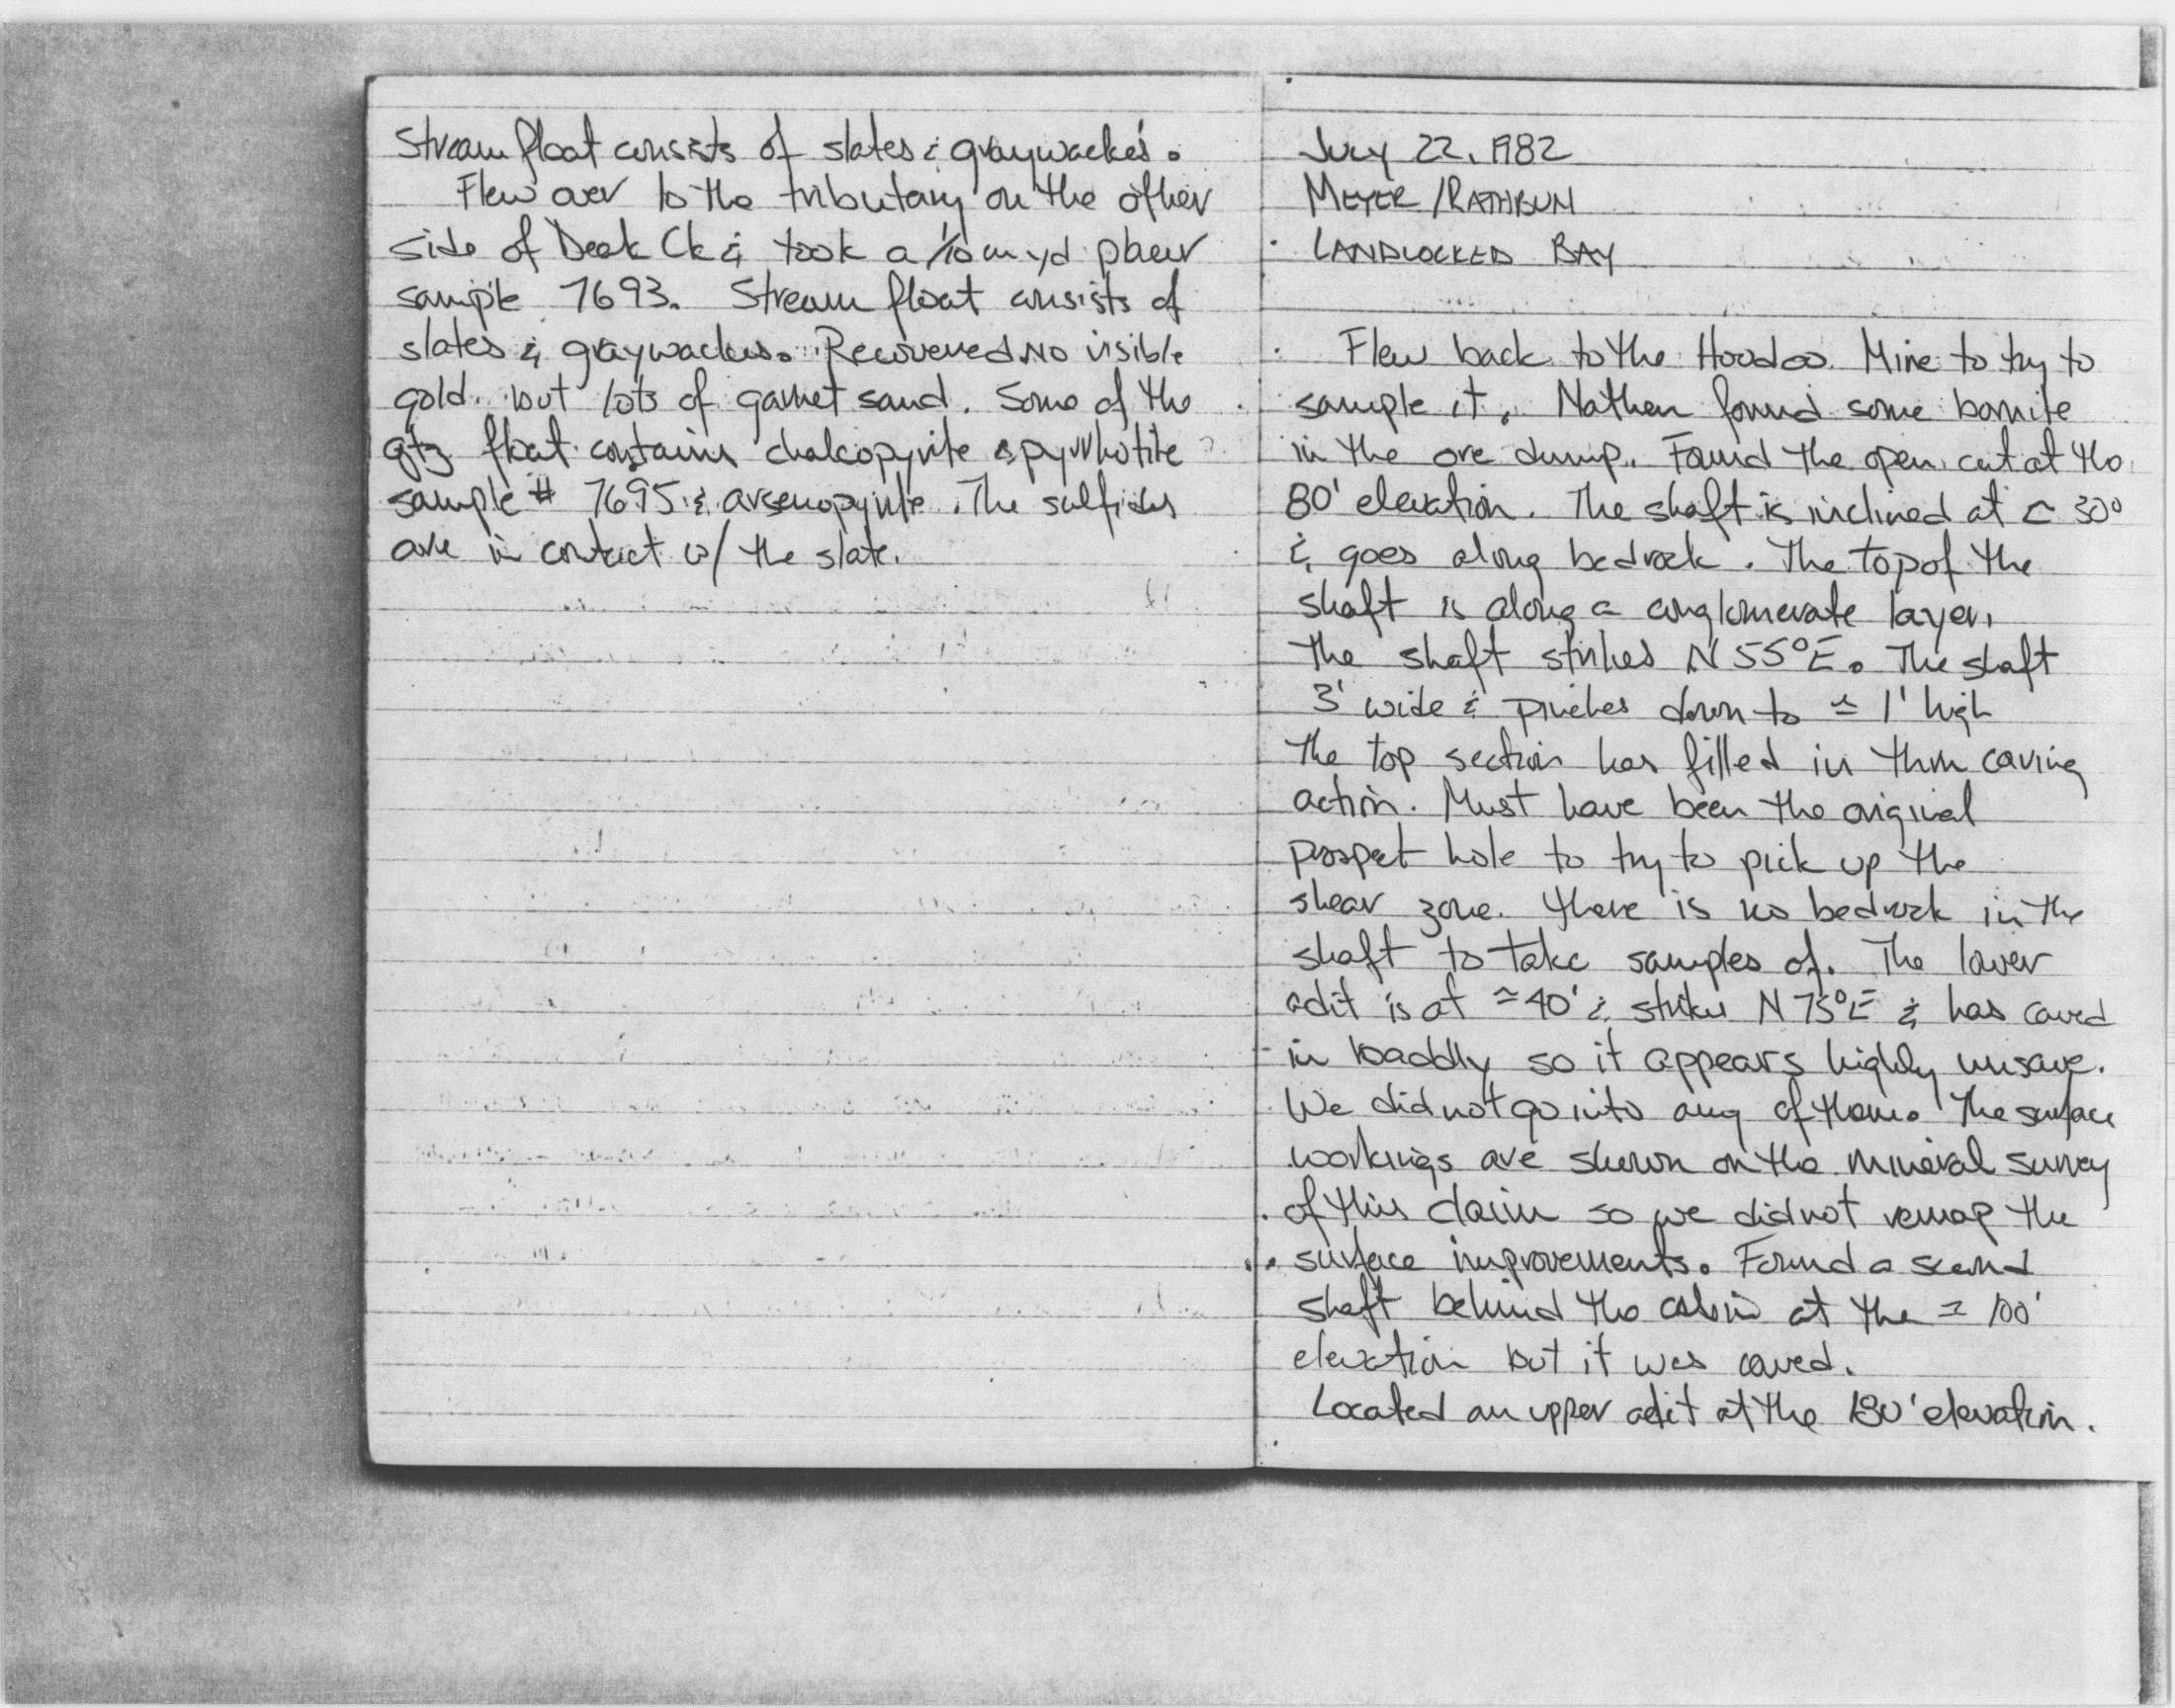 Stream float consists of slates & graywacke's.
Flew over to the tributary on the other
side of Deek Ck & took a 1/10 cu yd placer
sample 7693. Stream float consists of
slates & graywackes. Recovered no visible
gold but lots of garnet sand. Some of the
qtz float contains chalcopyrite & pyrrhotite
sample # 7695 & arsenopyrite. The sulfides
are in contact w/ the slate.
JULY 22, 1982
MEYER / RATHBUN
LANDLOCKED BAY
Flew back to the Hoodoo Mine to try to
sample it. Nathan found some bornite
in the ore dump. Found the open cut at the
80' elevation. The shaft is inclined at 30°
& goes along bedrock. The top of the
shaft is along a conglomerate layer.
The shaft strikes N 55° E. The shaft
3' wide & pinches down to ≃ 1' high
The top section has filled in thru caving
action. Must have been the original
prospect hole to try to pick up the
shear zone. There is no bedrock in the
shaft to take samples of. The lower
adit is at ≃ 40' & strikes N 75° E & has caved
in baddly so it appears highly unsave.
We did not go into any of them. The surface
workings are shown on the mineral survey
of this claim so we did not remap the
surface improvements. Found a second
shaft behind the cabin at the ≃ 100'
elevation but it was caved.
Located an upper adit at the 180' elevation.